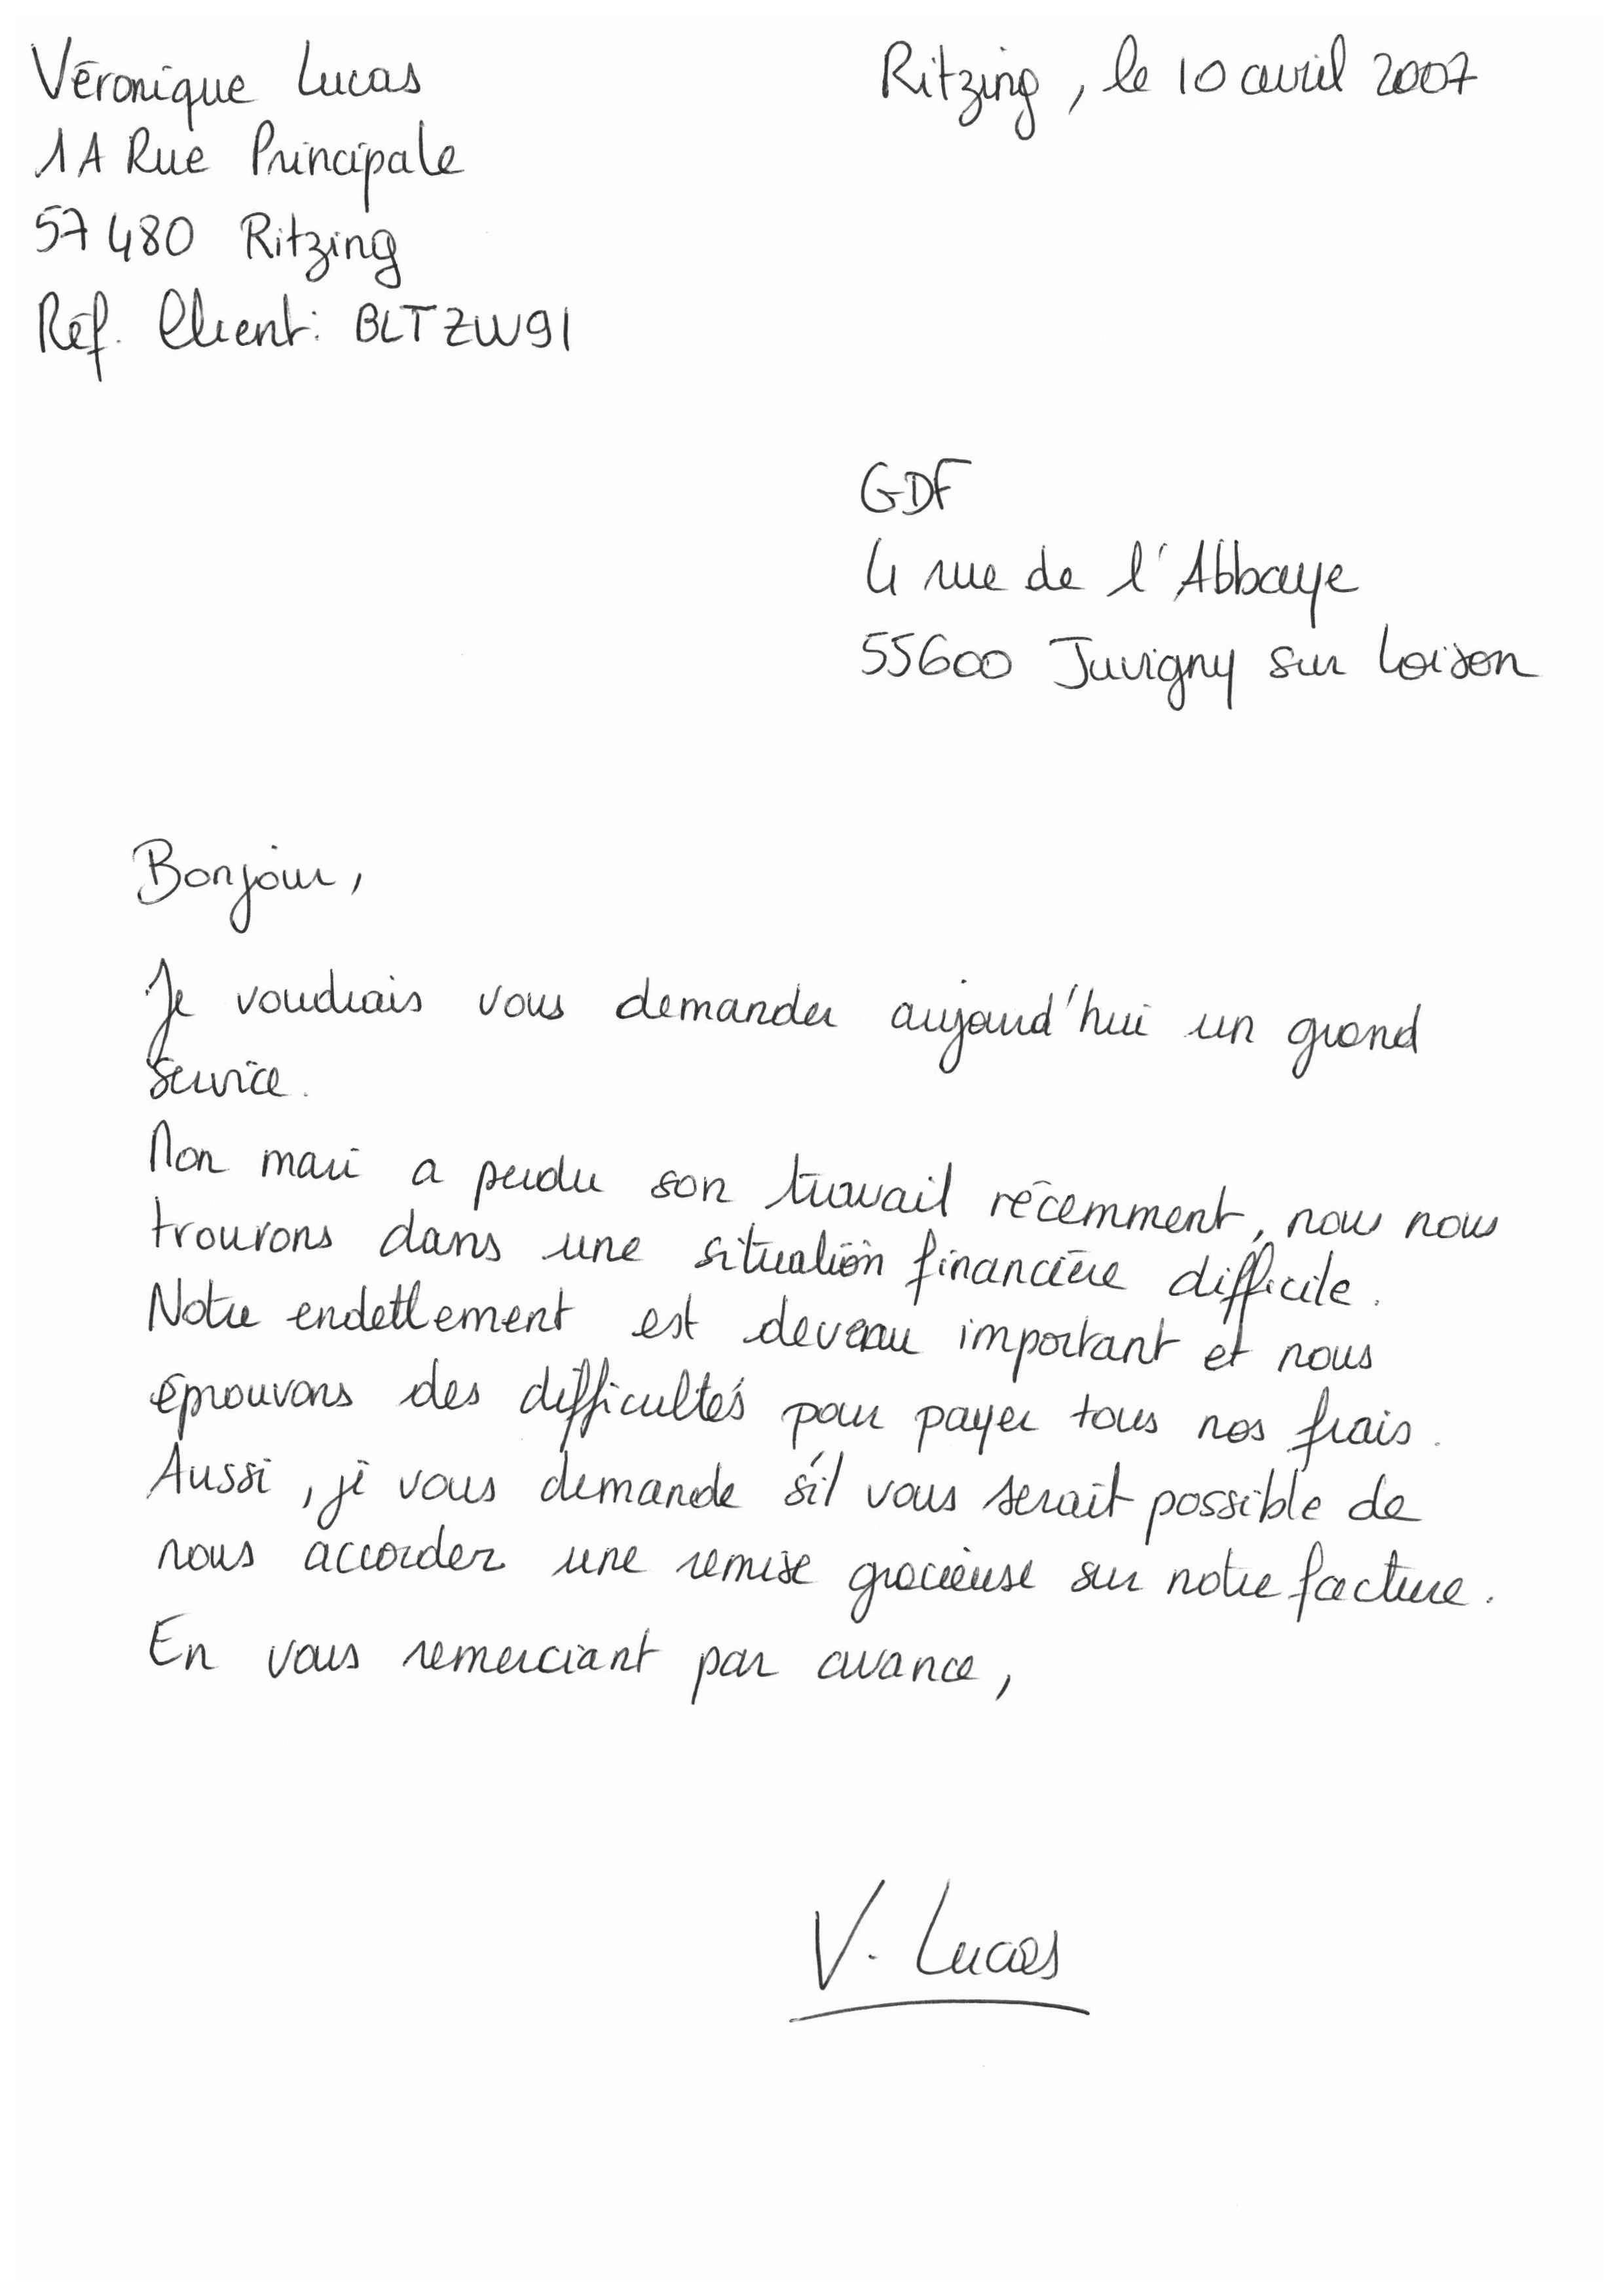 Véronique Lucas
1A Rue Principale
57480 Ritzing
Réf. Client: BLTZW91
Ritzing, le 10 avril 2007
GDF
4 rue de l'Abbaye
55600 Juvigny sur Loison
Bonjour,
Je voudrais vous demander aujourd'hui un grand
service.
Mon mari a perdu son travail récemment, nous nous
trouvons dans une situation financière difficile.
Notre endettement est devenu important et nous
éprouvons des difficultés pour payer tous nos frais.
Aussi, je vous demande s'il vous serait possible de
nous accorder une remise gracieuse sur notre facture.
En vous remerciant par avance,
V. Lucas